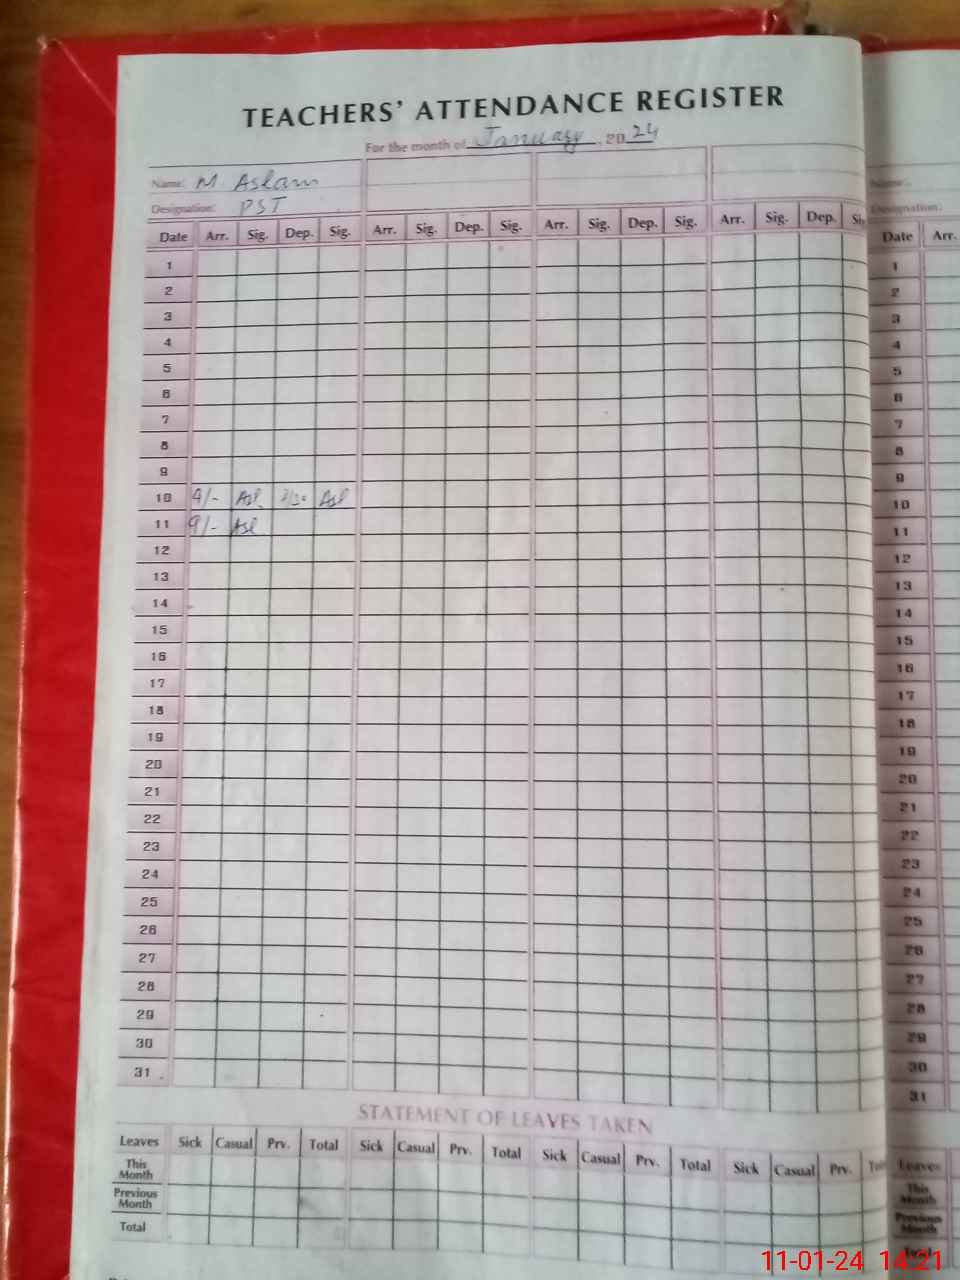 TEACHERS' ATTENDANCE REGISTER
For the month of January, 2024
Name: M Aslam
Designation: PST
Date Arr. Sig. Dep. Sig. Arr. Sig. Dep. Sig. Arr. Sig. Dep. Sig. Arr. Sig. Dep.
1
2
3
4
5
6
7
8
9
10 9/- Asl 2/30 Asl
11 9/- Asl
12
13
14
15
16
17
18
19
20
21
22
23
24
25
26
27
28
29
30
31
STATEMENT OF LEAVES TAKEN
Leaves Sick Casual Prv. Total Sick Casual Prv. Total Sick Casual Prv. Total Sick Casual Prv.
This
Month
Previous
Month
Total
Name:
Designation:
Date Arr.
1
2
3
4
5
6
7
8
9
10
11
12
13
14
15
16
17
18
19
20
21
22
23
24
25
26
27
28
29
30
31
Leaves
This
Month
Previous
Month
11-01-24 14:21